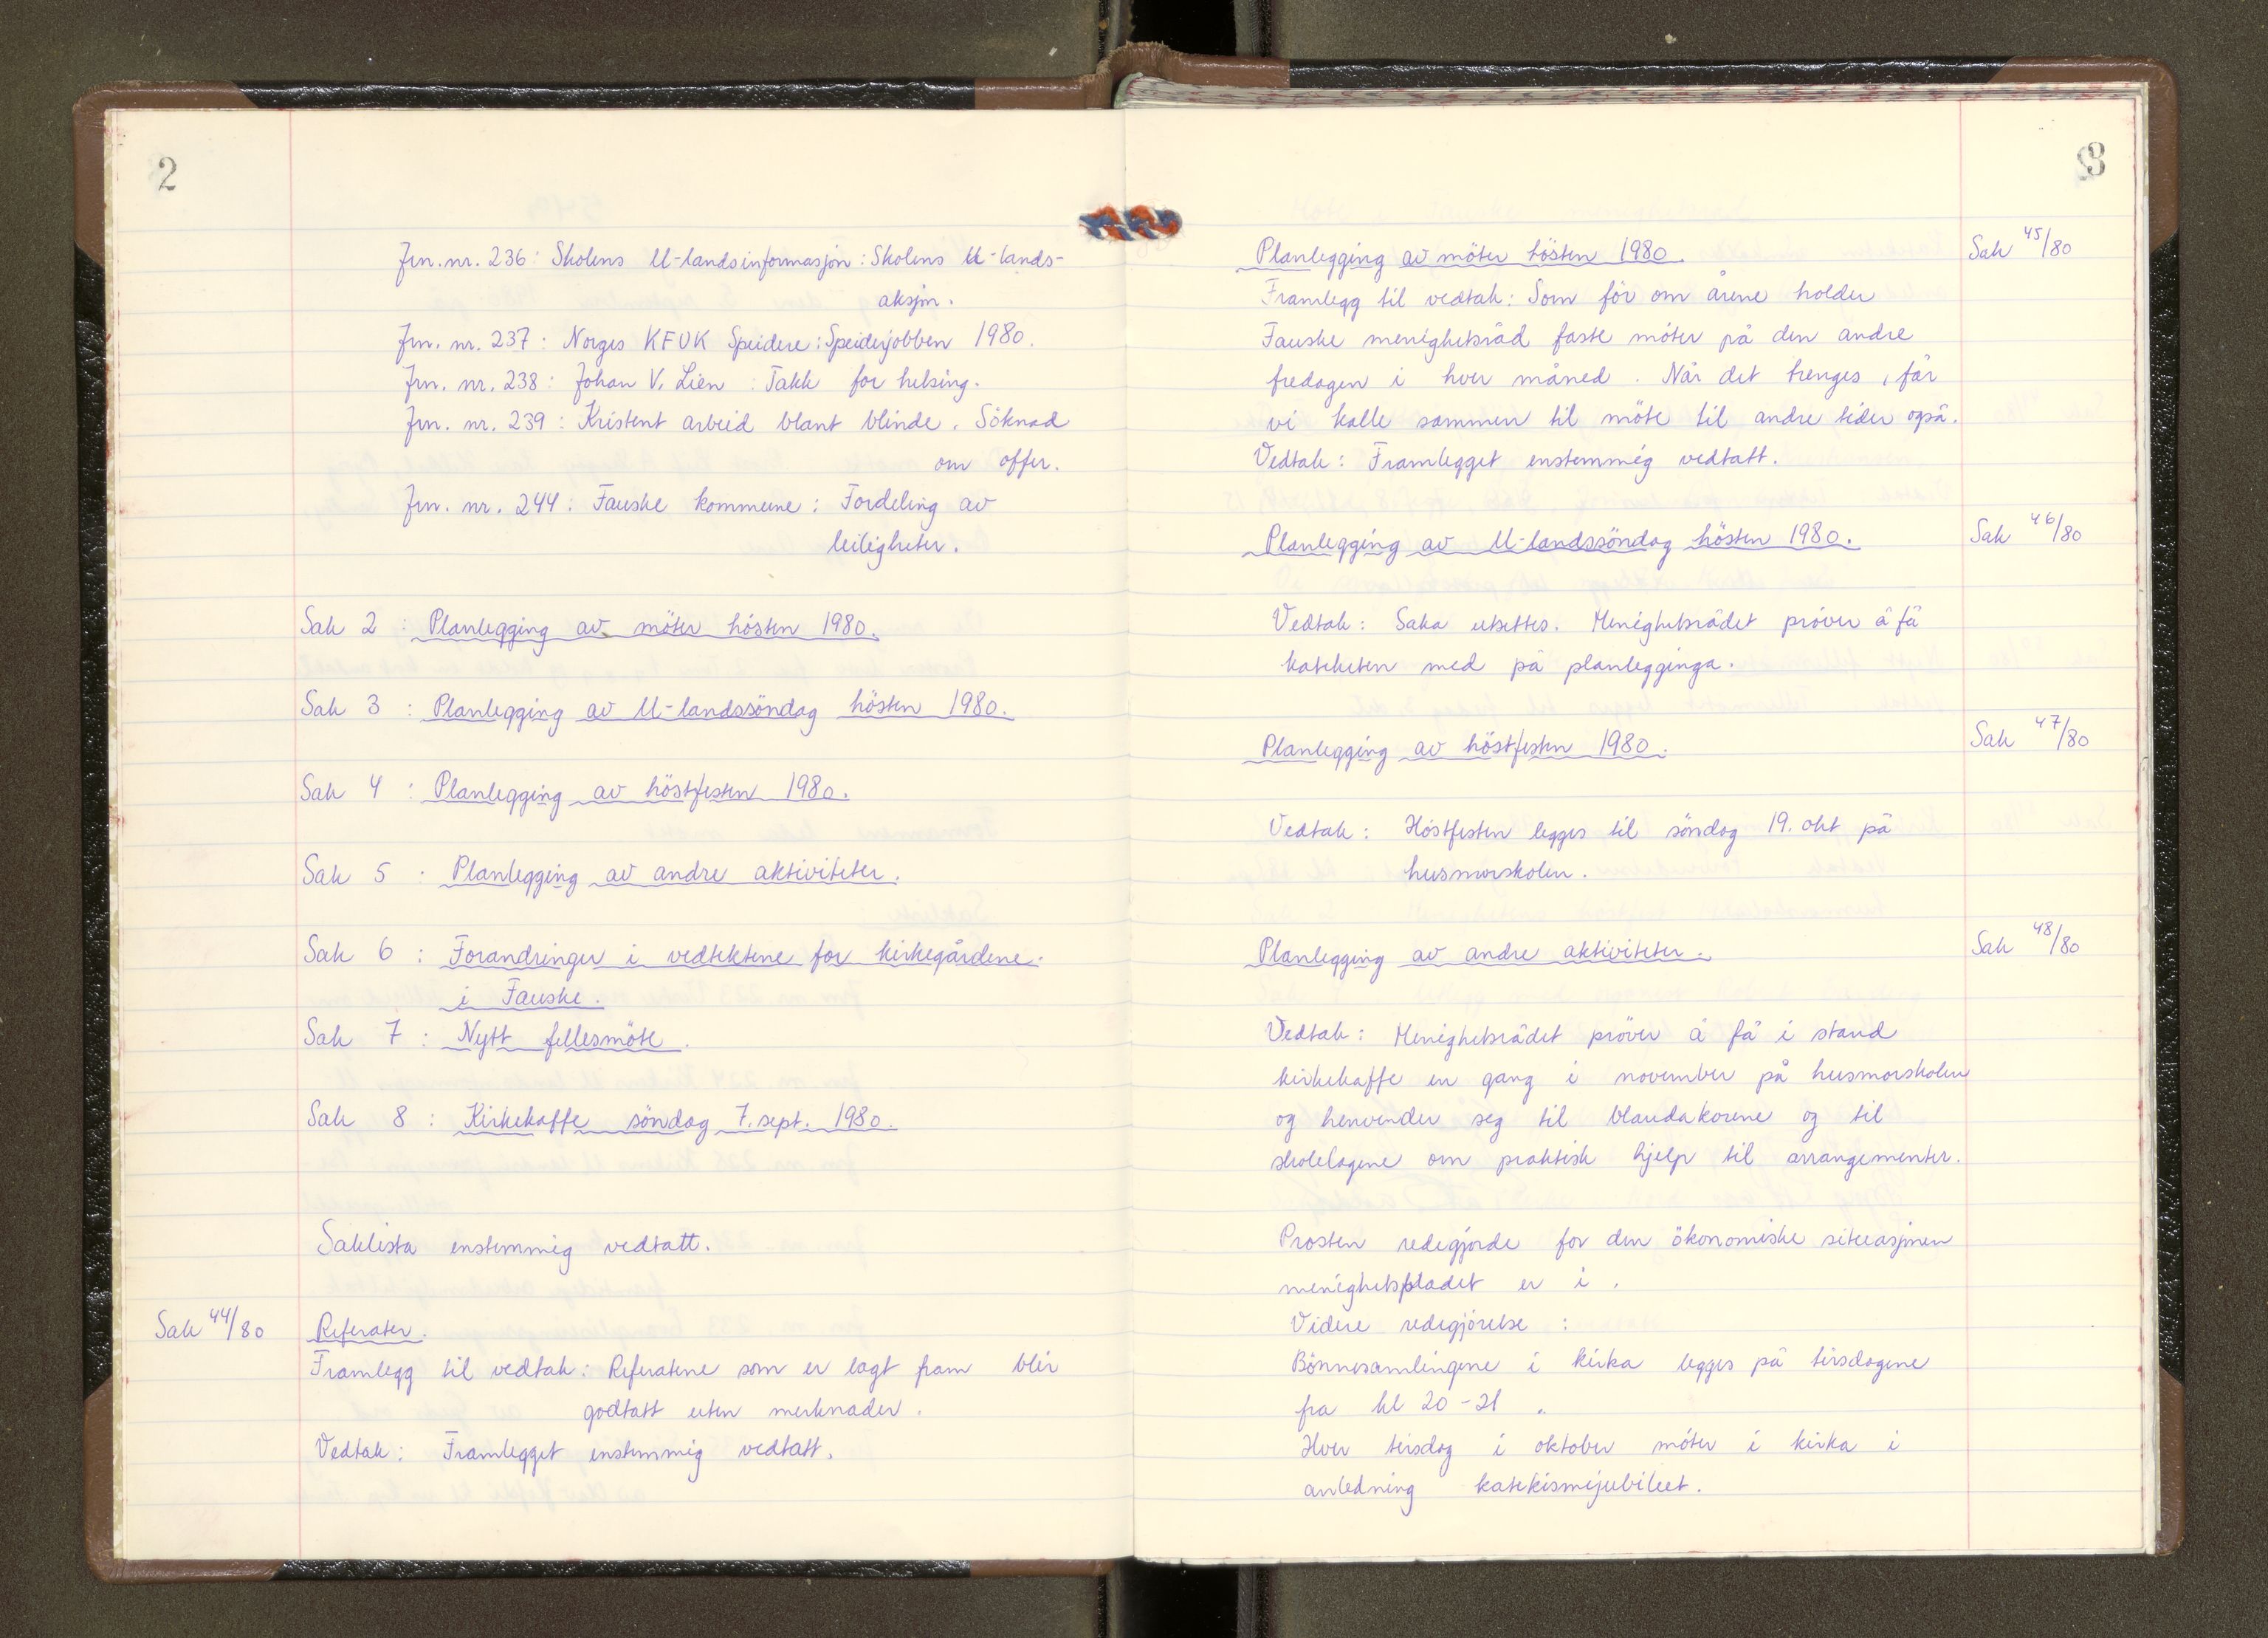 2
Jrn. nr. 236: Skolens U-landsinformasjon: Skolens U-lands-
aksjon.
Jrn. nr. 237: Norges KFUK Speidere: Speiderjobben 1980.
Jrn. nr. 238: Johan V. Lien: Takk for helsing.
Jrn. nr. 239: Kristent arbeid blant blinde. Söknad
om offer.
Jrn. nr. 244: Fauske kommune: Fordeling av
leiligheter.
Sak 2: Planlegging av möter hösten 1980.
Sak 3: Planlegging av U-landssöndag hösten 1980.
Sak 4: Planlegging av höstfesten 1980.
Sak 5: Planlegging av andre aktiviteter.
Sak 6: Forandringer i vedtektene for kirkegårdene
i Fauske.
Sak 7: Nytt fellesmöte.
Sak 8: Kirkekaffe söndag 7. sept. 1980.
Saklista enstemmig vedtatt.
Sak 44/80 Referater.
Framlegg til vedtak: Referatene som er lagt fram blir
godtatt uten merknader.
Vedtak: Framlegget enstemmig vedtatt.
3
Planlegging av möter hösten 1980. Sak 45/80
Framlegg til vedtak: Som för om årene holder
Fauske menighetsråd faste möter på den andre
fredagen i hver måned. Når det trenges, får
vi kalle sammen til möte til andre tider også.
Vedtak: Framlegget enstemmig vedtatt.
Planlegging av U-landssöndag hösten 1980. Sak 46/80
Vedtak: Saka utsettes. Menighetsrådet pröver å få
kateketen med på planlegginga.
Planlegging av höstfesten 1980. Sak 47/80
Vedtak: Höstfesten legges til söndag 19. okt på
husmorskolen.
Planlegging av andre aktiviteter. Sak 48/80
Vedtak: Menighetsrådet pröver å få i stand
kirkekaffe en gang i november på husmorskolen
og henvender seg til blandakorene og til
skolelagene om praktisk hjelp til arrangementer.
Prosten redegjorde for den ökonomiske situasjonen
menighetsbladet er i.
Videre redegjörelse:
Bönnesamlingene i kirka legges på tirsdagene
fra kl 20-21.
Hver tirsdag i oktober möter i kirka i
anledning katekismejubileet.